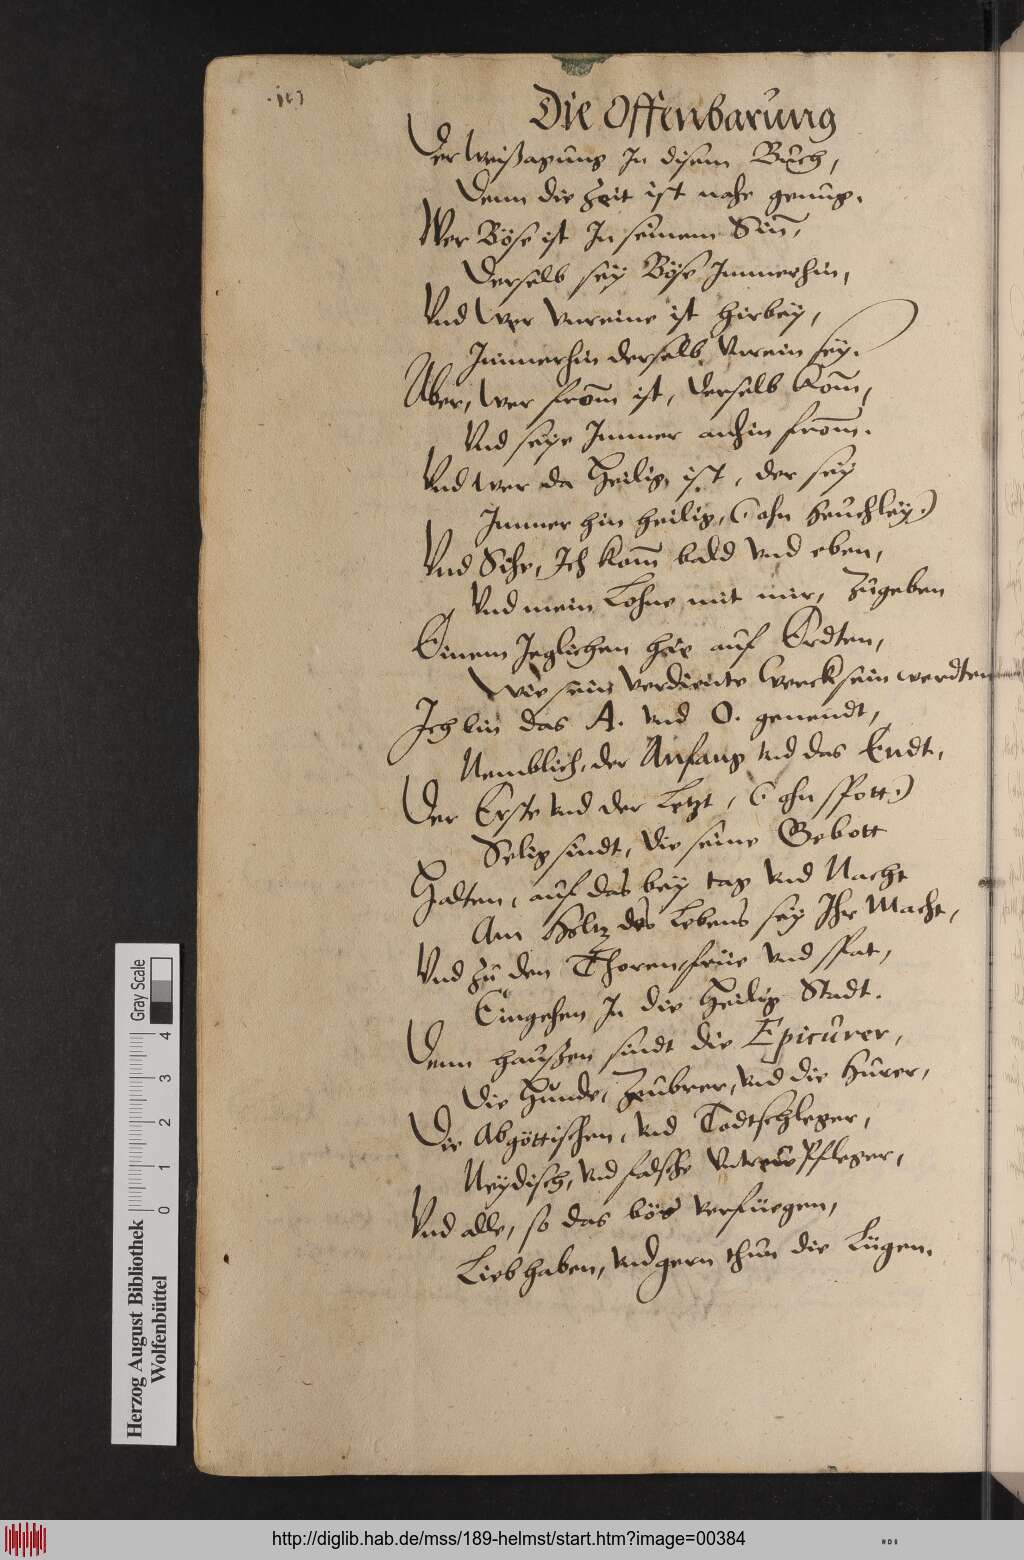 Die Offenbarung
Der Weißagung In disem Buch,
Denn die Zeit ist nahe genug.
Wer Böse ist In seinem Siñ,
Derselb sey Böse Immerhin,
Vnd Wer Vnreine ist hirbey,
Immerhin derselb Vnrein sey.
Aber, Wer from̃ ist, derselb Kom̃,
Vnd seye Immer anhin from̃.
Vnd wer da Heilig ist, der sey
Immer hin heilig, (ohn heuchley)
Vnd Sihe, Ich kom̃ bald vnd eben,
Vnd mein Lohne mit mir, Zugeben
Einem Jeglichen hie auf Erdten,
Wie sein verdiente Werck sein werdten
Ich bin das A. vnd O. genendt,
Nemblich, der Anfang vnd das Endt,
Der Erste vnd der Letzt, (ohn spott)
Selig sindt, die seine Gebott
Halten, auf das bey tag vnd Nacht
Am Holtz des Lebens sey Ihr Macht,
Vnd zu den Thoren, früe vnd spat,
Eingehen In die Heilig Stadt.
Denn haußen sindt die Epicurer,
Die Hunde, Zeubrer, vnd die hurer,
Die Abgöttischen, vnd Todtschleger,
Neydisch, vnd falsche Vntreue Pfleger,
Vnd alle, so das bös verfüegen,
Lieb haben, vnd gern thun die Lügen.
Herzog August Bibliothek
Wolfenbüttel
0 1 2 3 4
Gray Scale
http://diglib.hab.de/mss/189-helmst/start.htm?image=00384